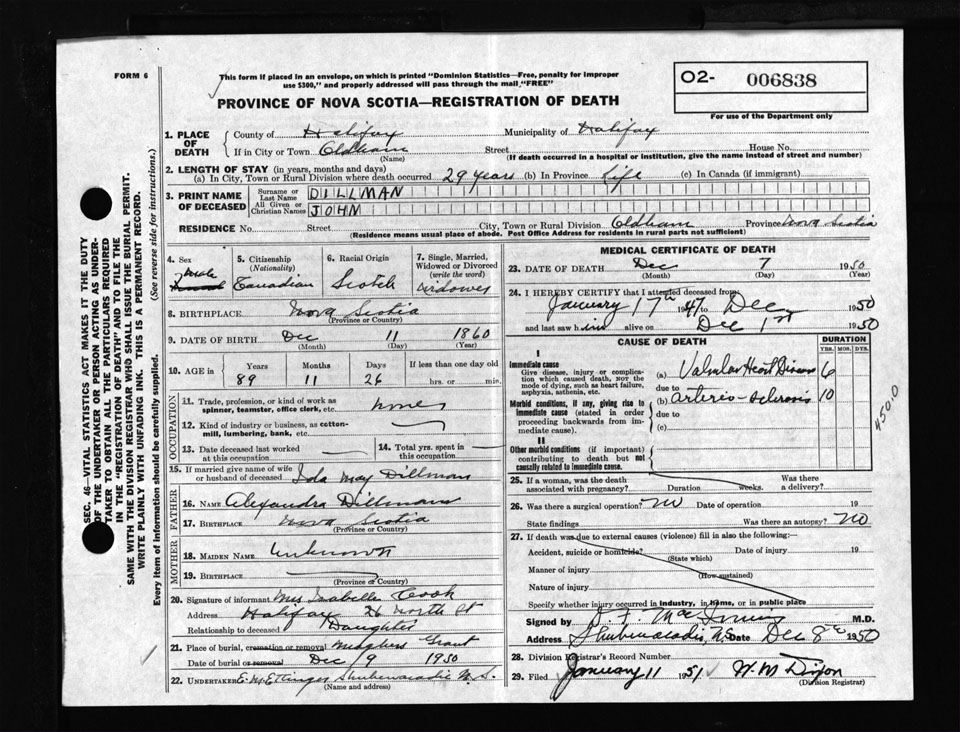 FORM 6
This form if placed in an envelope, on which is printed "Dominion Statistics—Free, penalty for improper
use $300," and properly addressed will pass through the mail "FREE"
O2- 006838
PROVINCE OF NOVA SCOTIA—REGISTRATION OF DEATH
For use of the Department only
1. PLACE OF DEATH
County of Halifax Municipality of Halifax
If in City or Town Oldham Street House No.
(Name) (If death occurred in a hospital or institution, give the name instead of street and number)
2. LENGTH OF STAY (in years, months and days)
(a) In City, Town or Rural Division where death occurred 29 years (b) In Province Life (c) In Canada (if immigrant)
3. PRINT NAME OF DECEASED
Surname or Last Name DILLMAN
All Given or Christian Names JOHN
RESIDENCE No. Street City, Town or Rural Division Oldham Province Nova Scotia
(Residence means usual place of abode. Post Office Address for residents in rural parts not sufficient)
4. Sex Male
5. Citizenship (Nationality) Canadian
6. Racial Origin Scotch
7. Single, Married, Widowed or Divorced (write the word) Widower
8. BIRTHPLACE Nova Scotia
(Province or Country)
9. DATE OF BIRTH Dec 11 1860
(Month) (Day) (Year)
10. AGE in Years Months Days If less than one day old
89 11 26 hrs. or min.
OCCUPATION
11. Trade, profession, or kind of work as
spinner, teamster, office clerk, etc.
12. Kind of industry or business, as cotton-
mill, lumbering, bank, etc.
13. Date deceased last worked
at this occupation
14. Total yrs. spent in
this occupation
15. If married give name of wife
or husband of deceased Ida May Dillman
FATHER
16. NAME Alexandra Dillman
17. BIRTHPLACE Nova Scotia
(Province or Country)
MOTHER
18. MAIDEN NAME Unknown
19. BIRTHPLACE
(Province or Country)
20. Signature of informant Mrs Isabelle Cook
Address Halifax 26 North St
Relationship to deceased Daughter
21. Place of burial, cremation or removal Meaghers Grant
Date of burial or removal Dec 9 1950
22. UNDERTAKER E. M. Ettinger Shubenacadie N.S.
(Name and address)
MEDICAL CERTIFICATE OF DEATH
23. DATE OF DEATH Dec 7 1950
(Month) (Day) (Year)
24. I HEREBY CERTIFY that I attended deceased from:
January 17th 1947 to Dec 1950
and last saw him alive on Dec 1st 1950
CAUSE OF DEATH DURATION
YRS. MOS. DYS.
I
Immediate cause
Give disease, injury or complica-
tion which caused death, NOT the
mode of dying, such as heart failure,
asphyxia, asthenia, etc.
(a) Valvular Heart Disease 6
due to
Morbid conditions, if any, giving rise to
immediate cause (stated in order
proceeding backwards from im-
mediate cause).
(b) Arterio-Sclerosis 10
due to
(c)
450.0
II
Other morbid conditions (if important)
contributing to death but not
causally related to immediate cause.
25. If a woman, was the death
associated with pregnancy? Duration weeks. Was there a delivery?
26. Was there a surgical operation? No Date of operation 19
State findings Was there an autopsy? No
27. If death was due to external causes (violence) fill in also the following:
Accident, suicide or homicide? Date of injury 19
(State which)
Manner of injury
(How sustained)
Nature of injury
Specify whether injury occurred in industry, in home, or in public place
Signed by M.D.
Address Shubenacadie, N.S. Date Dec 8th 1950
28. Division Registrar's Record Number
29. Filed January 11 1951 H. M. Dixon
(Division Registrar)
SEC. 46—VITAL STATISTICS ACT MAKES IT THE DUTY
OF THE UNDERTAKER OR PERSON ACTING AS UNDER-
TAKER TO OBTAIN ALL THE PARTICULARS REQUIRED
IN THE "REGISTRATION OF DEATH" AND TO FILE THE
SAME WITH THE DIVISION REGISTRAR WHO SHALL ISSUE THE BURIAL PERMIT.
WRITE PLAINLY WITH UNFADING INK. THIS IS A PERMANENT RECORD.
Every item of information should be carefully supplied. (See reverse side for instructions.)